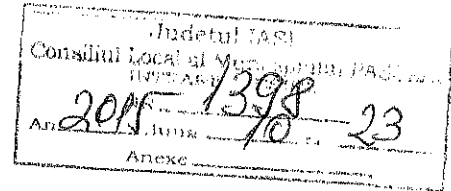 Judetul IASI
Consiliul Local al Municipiului
1398
An 2015 Luna 10 23
Anexe